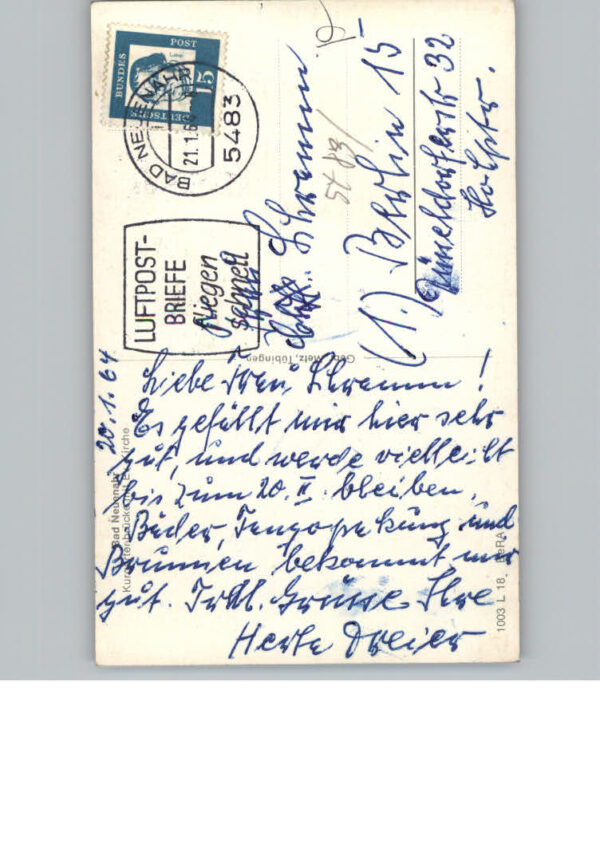 DEUTSCHE
BUNDES
POST
15
BAD NEUENAHR
21.1.6
5483
LUFTPOST-
BRIEFE
fliegen
schnell
Schramm
5483/
(1) Berlin 15
Düsseldorferstr 32
Gebr. Metz, Tübingen
20.1.64
Liebe Frau Schramm!
Es gefällt mir hier sehr
gut, und werde vielleicht
bis zum 20. II. bleiben.
Bäder, und
Brunnen bekommt mir
gut. Grüsse Ihre
Herta Dreier
Bad Neuenahr
Kirche
1003 L 18.